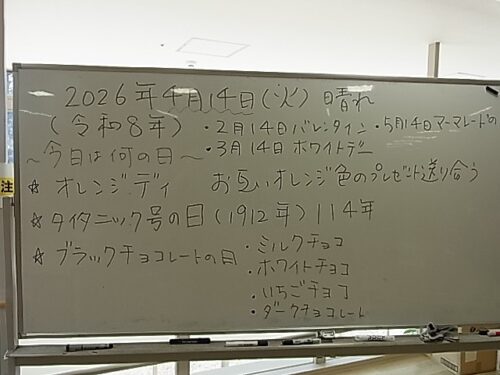 2026年4月14日(火) 晴れ
(令和8年) ・2月14日バレンタイン ・5月14日マーマレードの
～今日は何の日～ ・3月14日ホワイトデー
☆ オレンジデイ お互いオレンジ色のプレゼント送り合う
☆ タイタニック号の日(1912年)114年
☆ ブラックチョコレートの日 ・ミルクチョコ
・ホワイトチョコ
・いちごチョコ
・ダークチョコレート
注